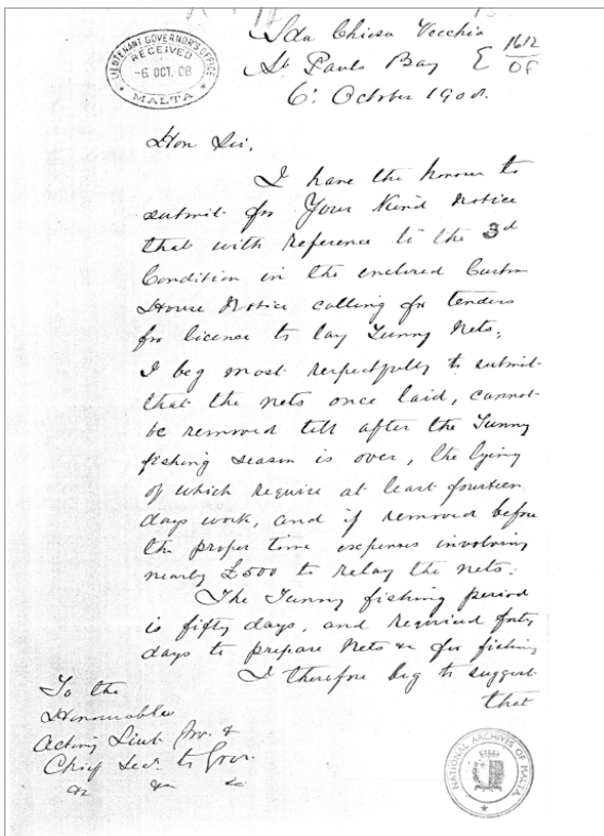 LIEUTENANT GOVERNOR'S OFFICE
RECEIVED
-6 OCT. 08
MALTA
Sda Chiesa Vecchia
St Pauls Bay { 1612/08
6: October 1908.
Hon Sir,
I have the honour to
submit for Your Kind Notice
that with reference to the 3d
Condition in the enclosed Custom
House Notice calling for tenders
for licence to lay Tunny Nets;
I beg most respectfully to submit
that the nets once laid, cannot
be removed till after the Tunny
fishing season is over, the lying
of which require at least fourteen
days work, and if removed before
the proper time expenses involving
nearly £500 to relay the nets:
The Tunny fishing period
is fifty days, and required forty
days to prepare Nets &c for fishing
I therefore beg to suggest
that
To the
Honourable
Acting Lieut Gov. &
Chief Sec. to Gov.
&c &c &c
NATIONAL ARCHIVES OF MALTA